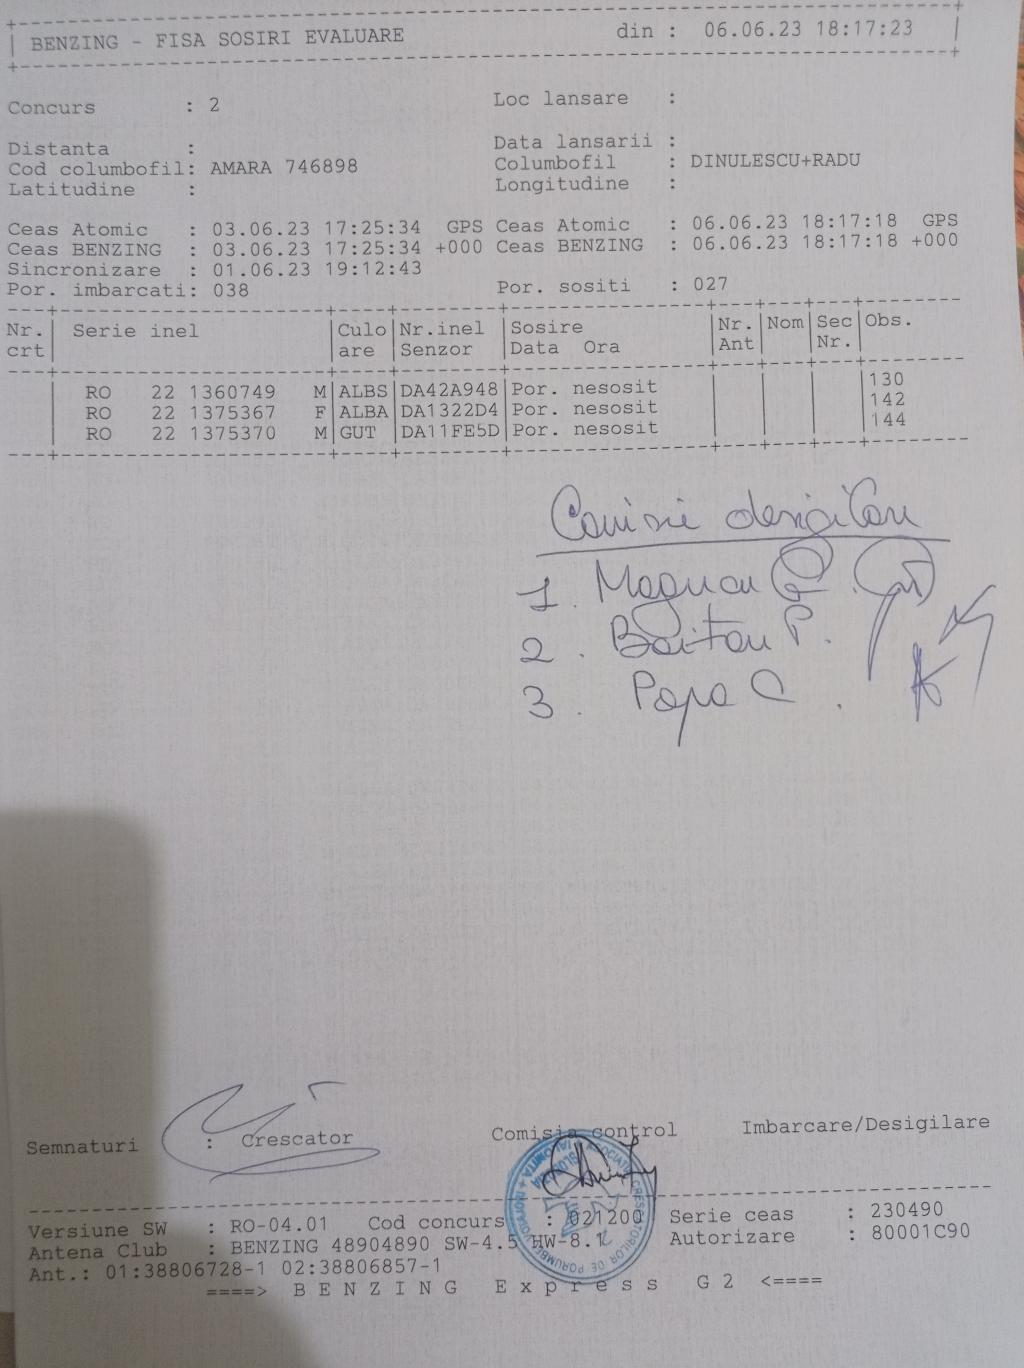 BENZING - FISA SOSIRI EVALUARE din : 06.06.23 18:17:23
Concurs : 2 Loc lansare :
Distanta : Data lansarii :
Cod columbofil: AMARA 746898 Columbofil : DINULESCU+RADU
Latitudine : Longitudine :
Ceas Atomic : 03.06.23 17:25:34 GPS Ceas Atomic : 06.06.23 18:17:18 GPS
Ceas BENZING : 03.06.23 17:25:34 +000 Ceas BENZING : 06.06.23 18:17:18 +000
Sincronizare : 01.06.23 19:12:43
Por. imbarcati: 038 Por. sositi : 027
Nr. Serie inel Culo Nr.inel Sosire Nr. Nom Sec Obs.
crt are Senzor Data Ora Ant Nr.
RO 22 1360749 M ALBS DA42A948 Por. nesosit 130
RO 22 1375367 F ALBA DA1322D4 Por. nesosit 142
RO 22 1375370 M GUT DA11FE5D Por. nesosit 144
1.
2. P.
3. Popa C.
Semnaturi : Crescator Comisia control Imbarcare/Desigilare
Versiune SW : RO-04.01 Cod concurs : 021200 Serie ceas : 230490
Antena Club : BENZING 48904890 SW-4.5 HW-8.1 Autorizare : 80001C90
Ant.: 01:38806728-1 02:38806857-1
====> B E N Z I N G E x p r e s s G 2 <====